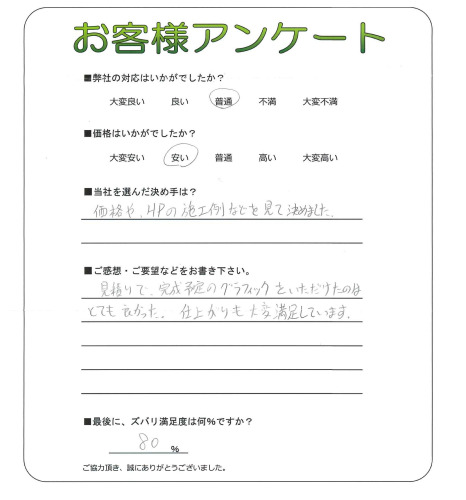 お客様アンケート
■弊社の対応はいかがでしたか？
大変良い 良い 普通 不満 大変不満
■価格はいかがでしたか？
大変安い 安い 普通 高い 大変高い
■当社を選んだ決め手は？
価格や、HPの施工例などを見て決めました。
■ご感想・ご要望などをお書き下さい。
見積りで、完成予定のグラフィックをいただけたのは
とても良かった。仕上がりも大変満足しています。
■最後に、ズバリ満足度は何％ですか？
80 ％
ご協力頂き、誠にありがとうございました。